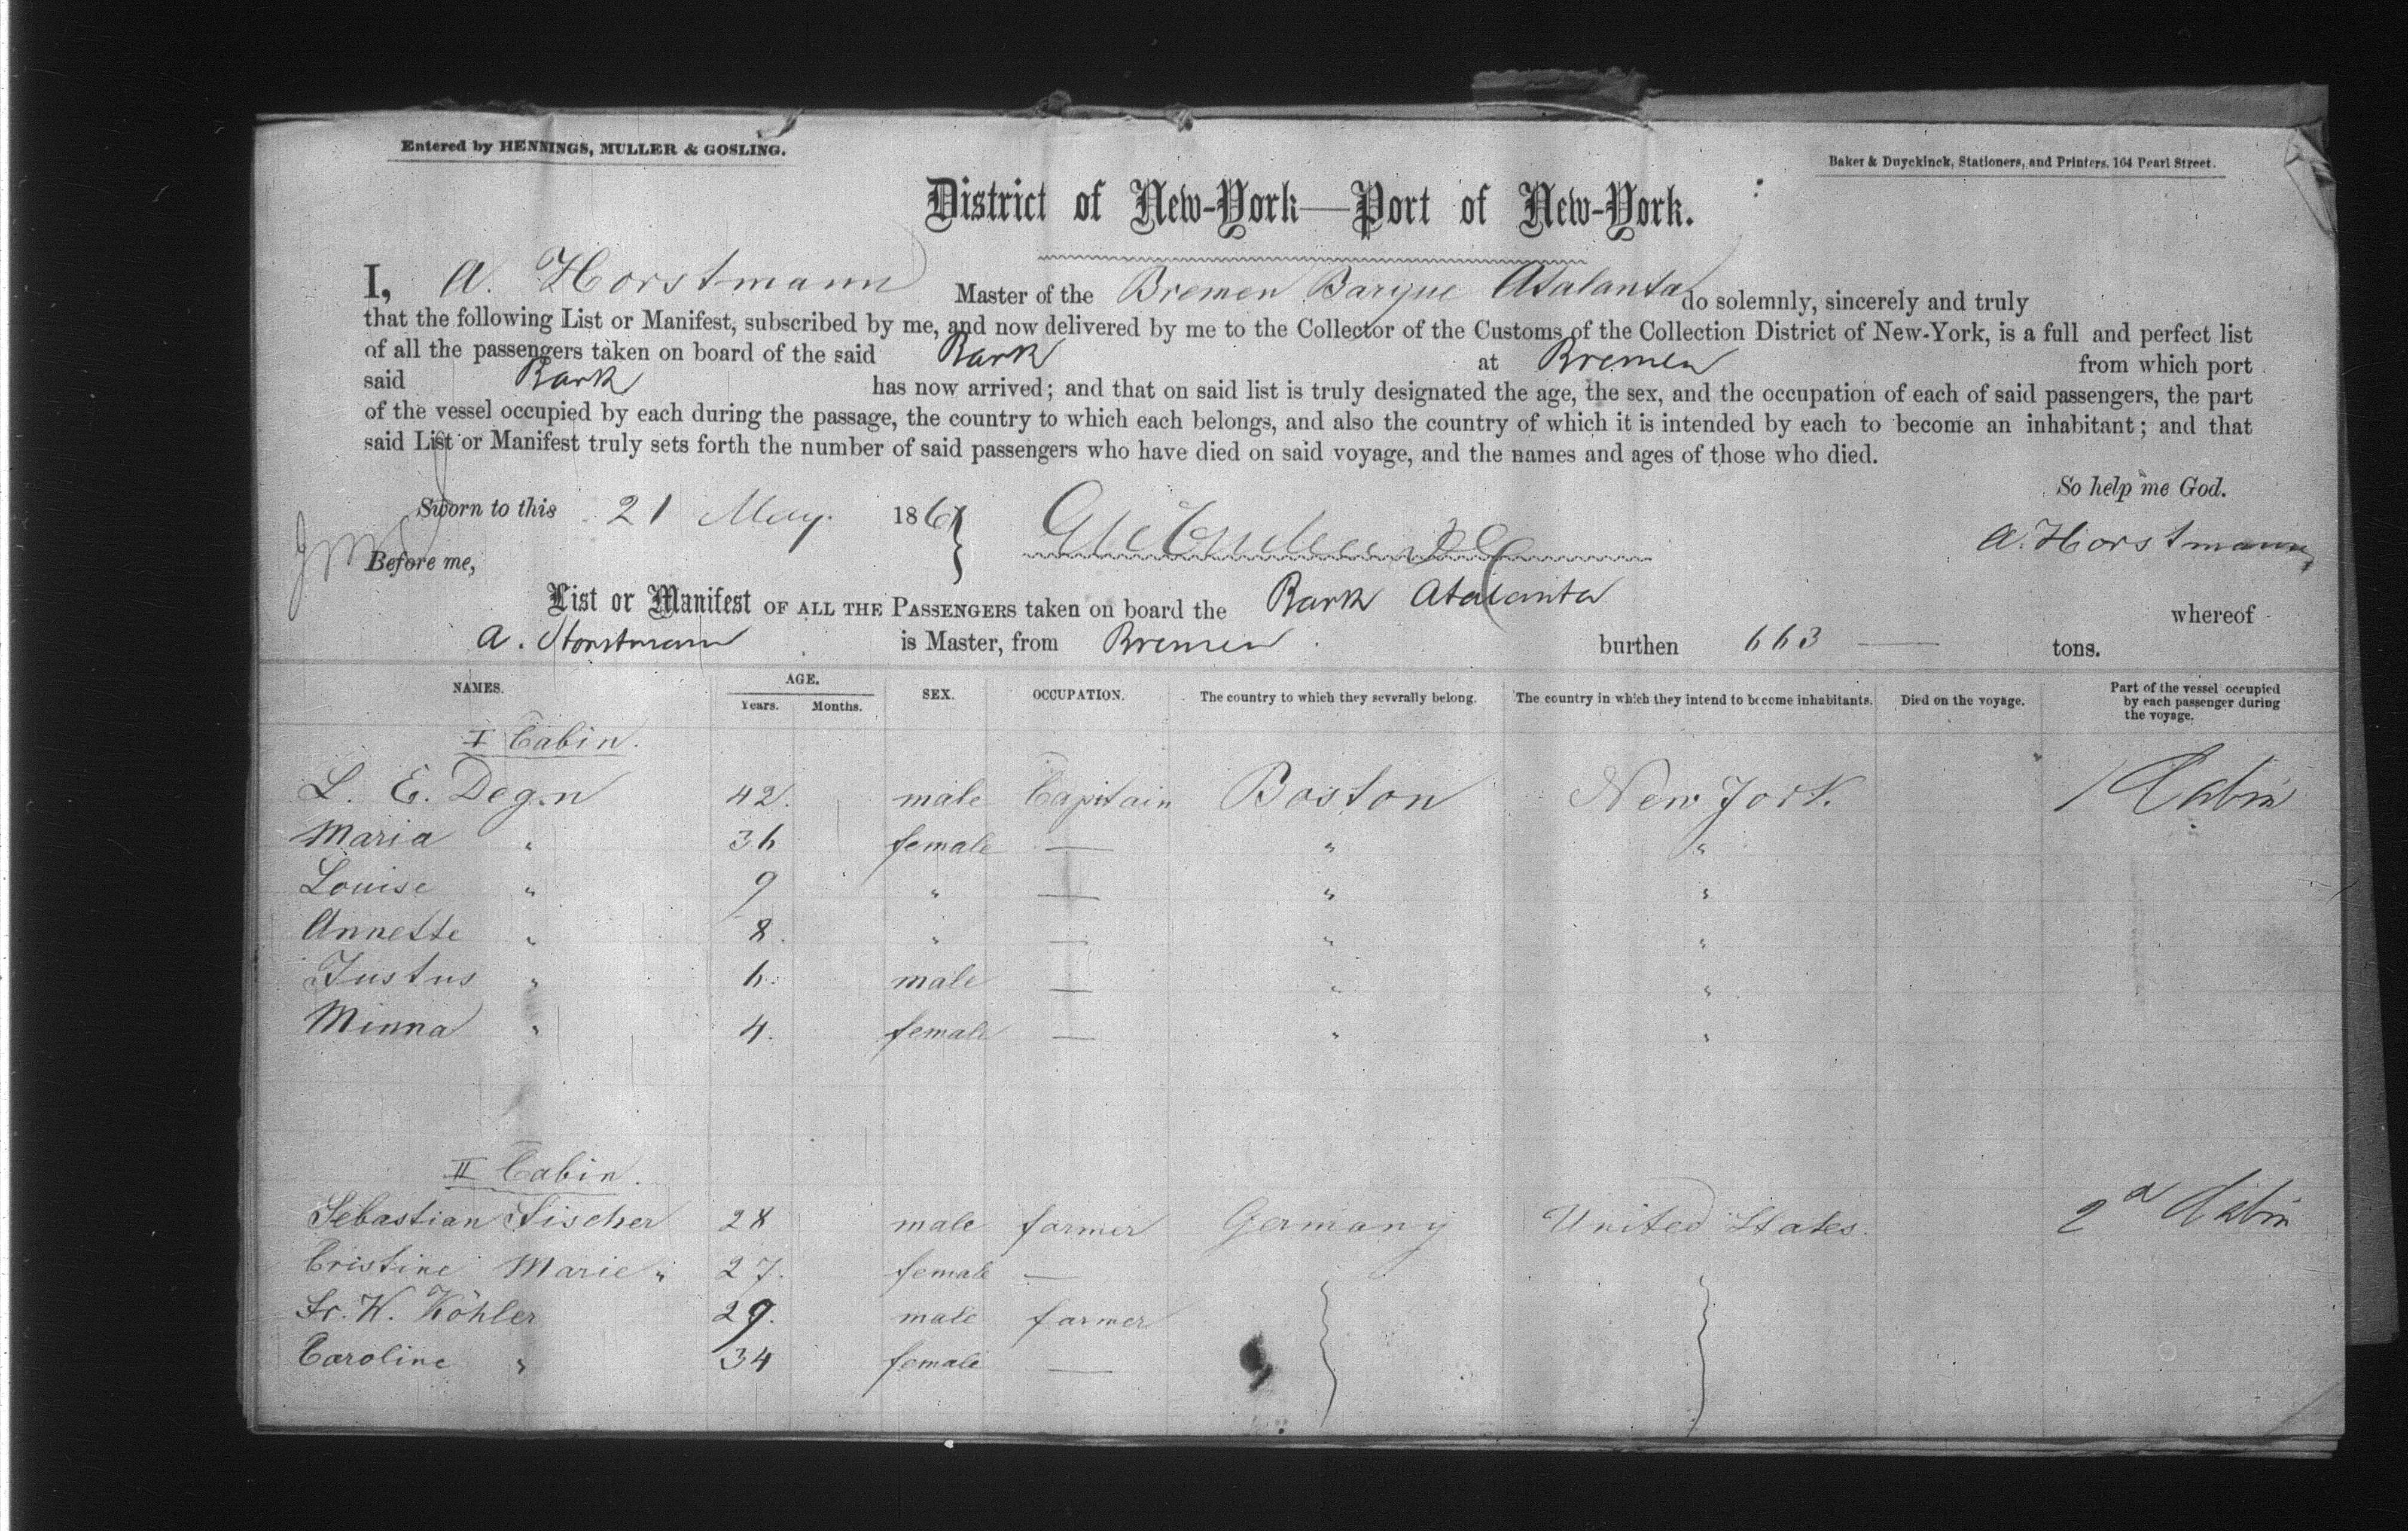 Entered by HENNINGS, MULLER & GOSLING.
Baker & Duyckinck, Stationers, and Printers, 164 Pearl Street.
District of New-York—Port of New-York.
I, A. Horstmann Master of the Bremen Barque Atalanta do solemnly, sincerely and truly
that the following List or Manifest, subscribed by me, and now delivered by me to the Collector of the Customs of the Collection District of New-York, is a full and perfect list
of all the passengers taken on board of the said Bark at Bremen from which port
said Bark has now arrived; and that on said list is truly designated the age, the sex, and the occupation of each of said passengers, the part
of the vessel occupied by each during the passage, the country to which each belongs, and also the country of which it is intended by each to become an inhabitant; and that
said List or Manifest truly sets forth the number of said passengers who have died on said voyage, and the names and ages of those who died.
So help me God.
Sworn to this 21 May. 186
A. Horstmann
Before me,
List or Manifest OF ALL THE PASSENGERS taken on board the Bark Atalanta whereof
A. Horstmann is Master, from Bremen. burthen 663 — tons.
NAMES. AGE. Years. Months. SEX. OCCUPATION. The country to which they severally belong. The country in which they intend to become inhabitants. Died on the voyage. Part of the vessel occupied by each passenger during the voyage.
I Cabin.
L. E. Degen 42. male Capitain Boston New York. 1 Cabin
Maria " 36 female — " "
Louise " 9 " — " "
Annette " 8. " — " "
Justus " 6. male — " "
Minna " 4. female — " "
II Cabin.
Sebastian Fischer 28 male farmer Germany United States. 2d Cabin
Cristine Marie " 27. female —
Fr. W. Köhler 29. male farmer
Caroline " 34 female —